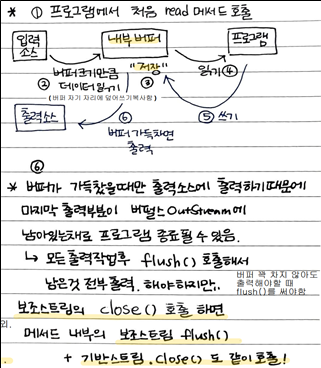 * ① 프로그램에서 처음 read 메서드 호출
입력
소스
내부버퍼
프로그램
② 버퍼크기만큼
데이터 읽기
(버퍼 자기 자리에 덮어쓰기복사함)
③ "저장"
읽기 ④
⑤ 쓰기
출력소스
⑥
버퍼 가득차면
출력
⑥
* 버퍼가 가득찼을때만 출력소스에 출력하기때문에
마지막 출력부분이 버퍼드OutStream에
남아있는채로 프로그램 종료될 수 있음.
↳ 모든출력작업후 flush() 호출해서
남은것 전부출력. 해야하지만,,
버퍼 꽉 차지 않아도
출력해야할 때
flush()를 써야함
보조스트림의 close() 호출 하면
외.
메서드 내부의 보조스트림 flush()
+ 기반스트림.close() 도 같이 호출!